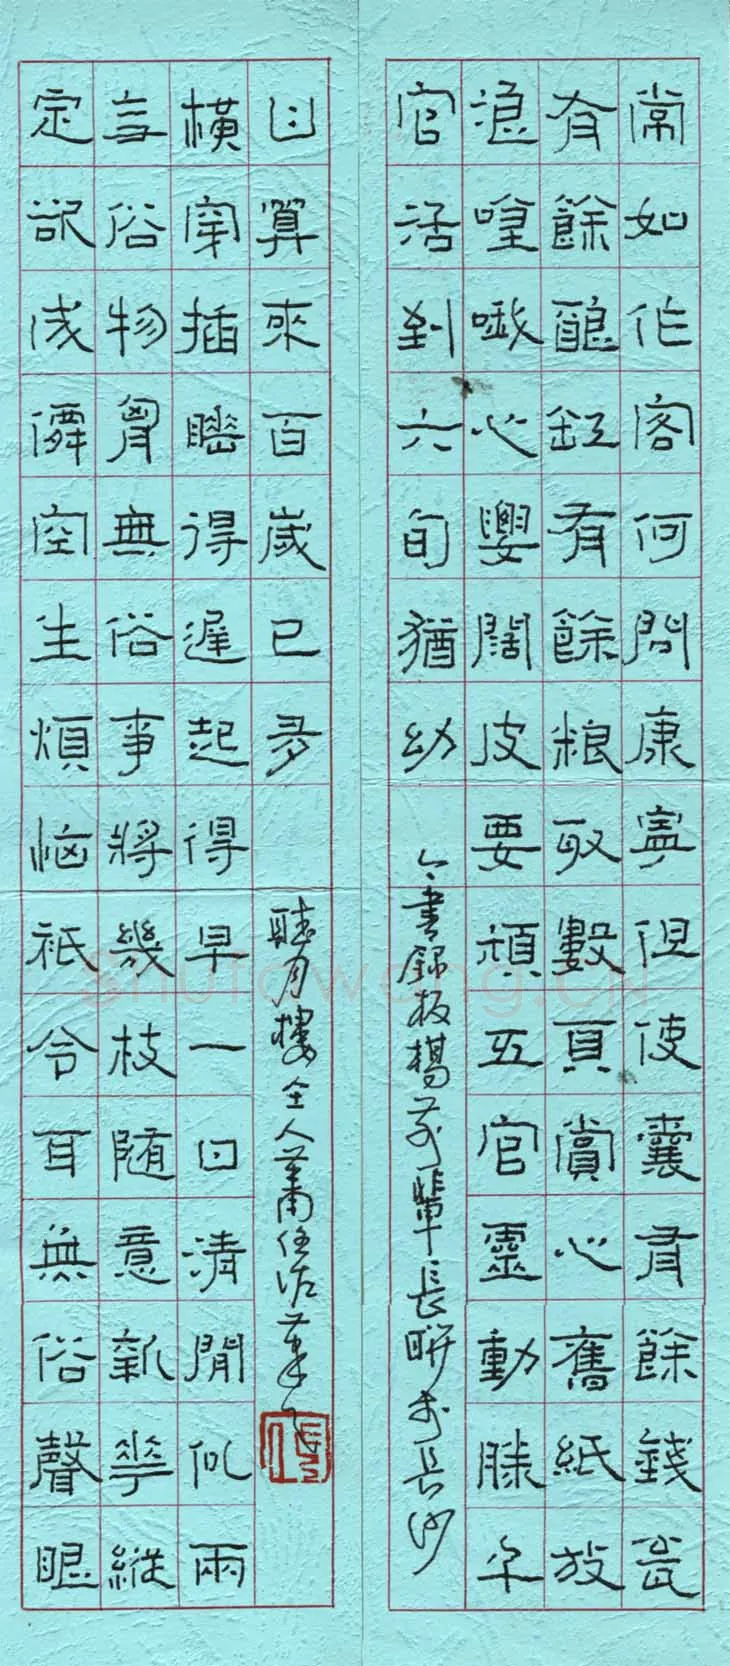 常如作客何問康寧但使囊有餘錢瓮
有餘釀缸有餘粮取數頁賞心舊紙放
浪哦心闊皮要頑五官靈動勝千
官活到六旬猶幼
書錄板橋前輩長聯於長沙
日算來百歲已多
聽月樓主人蕭
橫穿插睡得遲起得早一日清閒似兩
无俗物胷無俗事將幾枝隨意新華縱
定欲成僊空生煩惱祇令耳無俗聲眼
Shufawang.CN